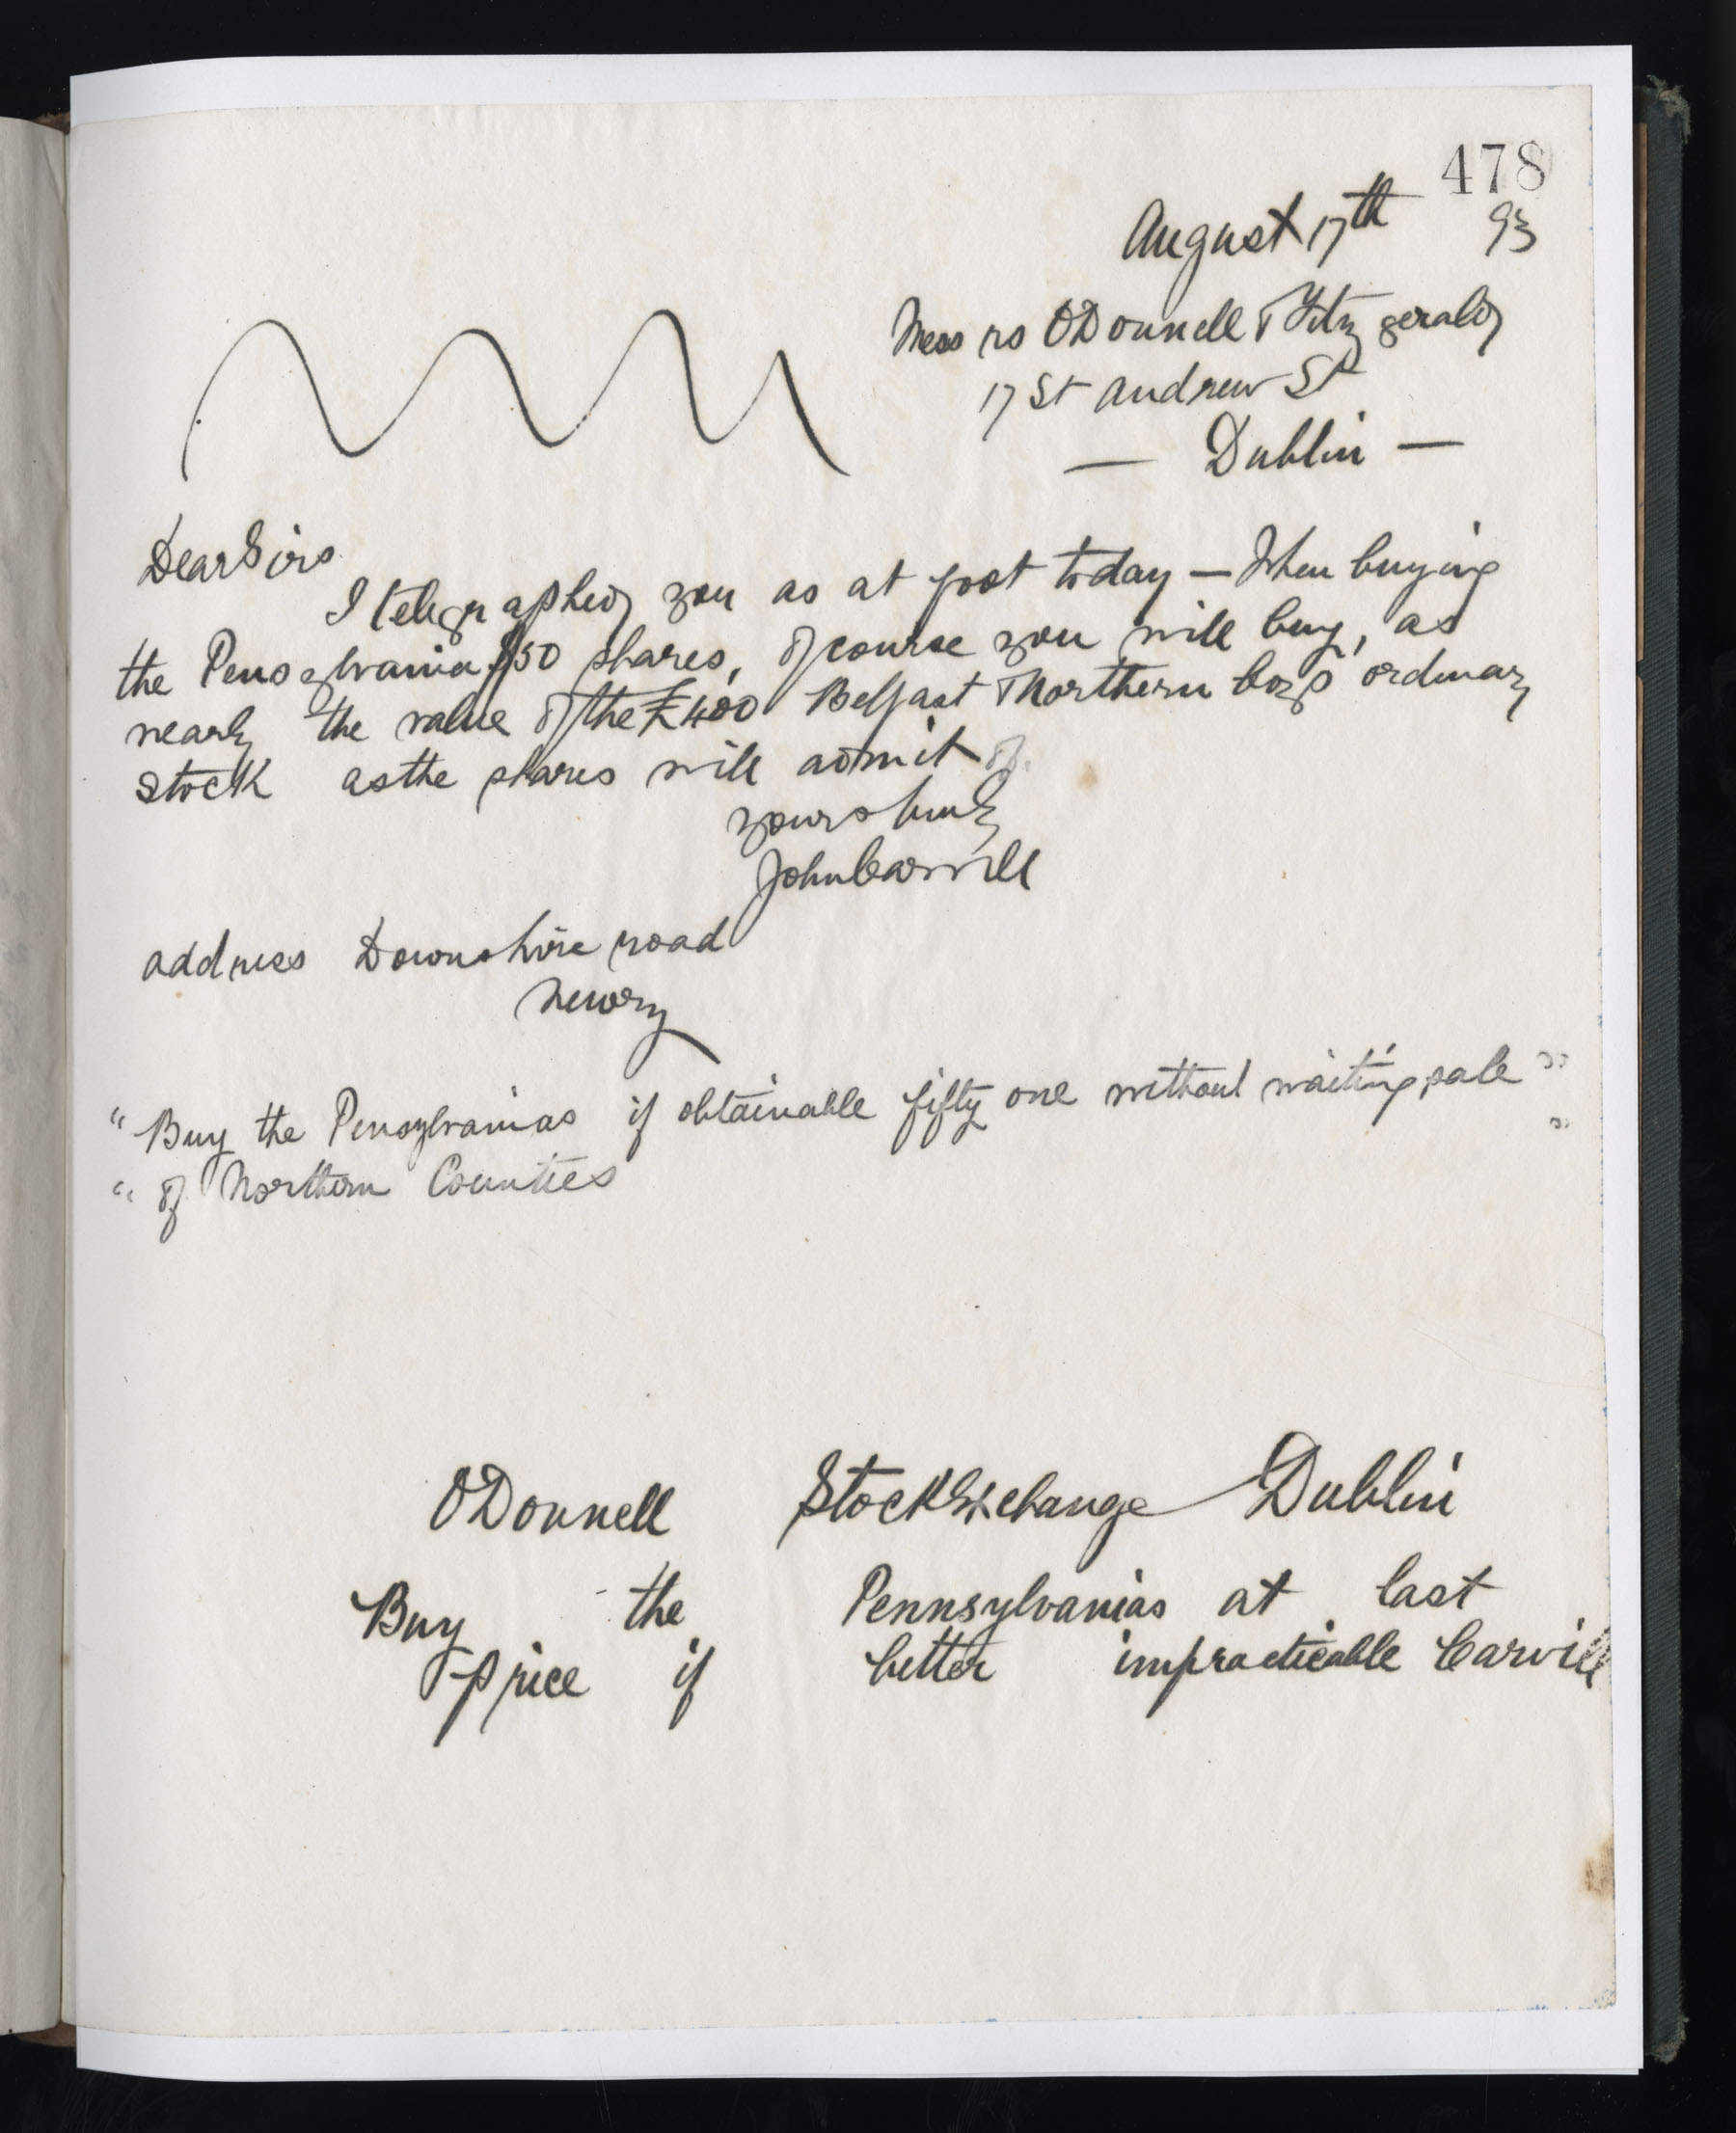 478
August 17th 93
Messrs O'Donnell & Fitzgerald
17 St Andrew St
— Dublin —
Dear Sirs
I telegraphed you as at foot today — When buying
the Pensylvania $50 shares, of course you will buy, as
nearly the value of the £400 Belfast & Northern Coys ordinary
stock as the shares will admit of.
yours truly
John Carvill
address Downshire road
Newry
"Buy the Pensylvanias if obtainable fifty one without waiting sale"
"of Northern Counties"
O'Donnell Stock Exchange Dublin
Buy the Pennsylvanias at last
price if better impracticable Carvill